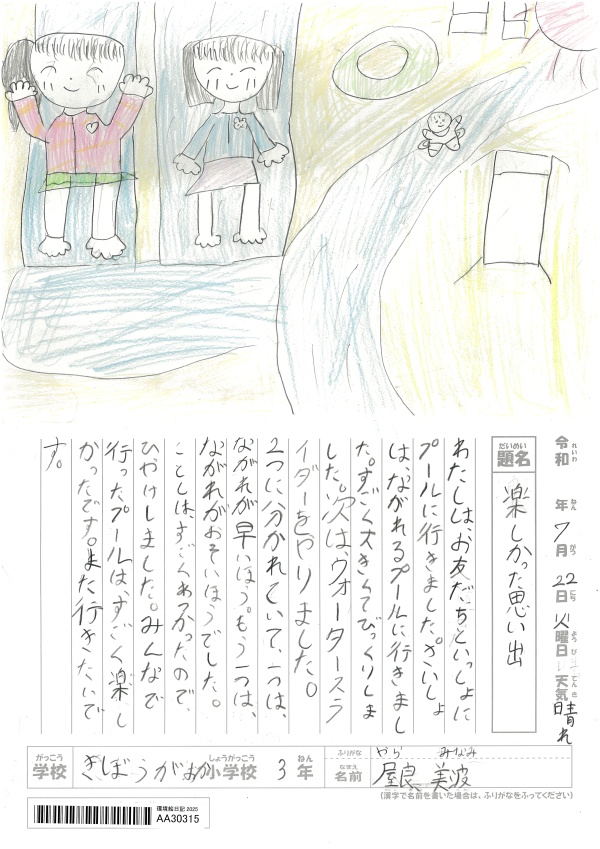 令和 年 7月 22日 火曜日 天気 晴れ
れいわ ねん がつ にち ようび てんき
だいめい
題名 楽しかった思い出
わたしは、お友だちといっしょに
プールに行きました。さいしょ
は、ながれるプールに行きまし
た。すごく大きくてびっくりしま
した。次は、ウォータースラ
イダーをやりました。
2つに分かれていて、一つは、
ながれが早いほう。もう一つは、
ながれがおそいほうでした。
ことしはすごくあつかったので、
ひやけしました。みんなで
行ったプールは、すごく楽し
かったです。また行きたいで
す。
がっこう しょうがっこう ねん
学校 きぼうがおか小学校 3年
ふりがな やら みなみ
なまえ
名前 屋良 美波
(漢字で名前を書いた場合は、ふりがなをふってください)
環境絵日記 2025
AA30315